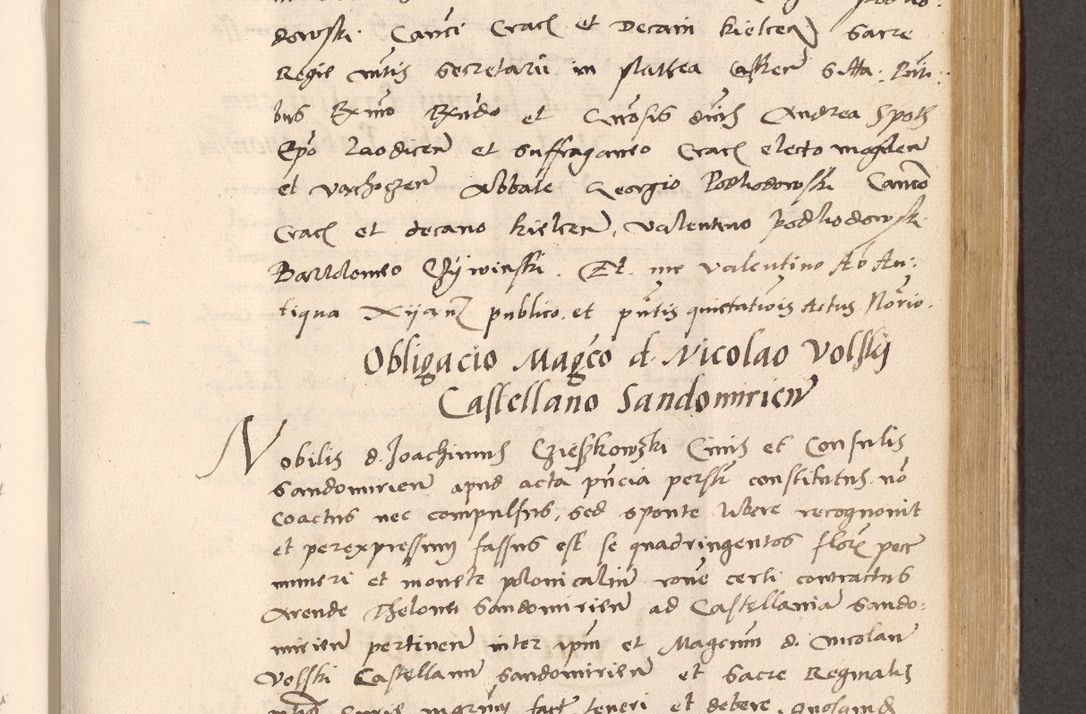 dowski Can̄ci Crac̄ et Decani Kielcen̄ Sacre
Regie mtis Secretarii in plathea Castren̄ sitta. Pn̄ti:
bus Rxmo Rxndo et Gn̄osis dn̄is Andrea Spoth
Ep̄o Laodicen̄ et Suffraganeo Crac̄ electo mogilen̄
et Vachocen̄ Abbate Georgio Podlodowski Can̄co
Crac̄ et decano Kielcen̄, Valentino Podlodowski
Bartolomeo Et. me Valentino Ab An:
tiqua publico. et pn̄tis quietationis Actus No᷑rio.
Obligacio Mag᷑co d. Nicolao Volski
Castellano Sandomirien̄
Nobilis d. Joachimus Czieszkowski Civis et Consulis
Sandomirien̄ apud acta pn̄cia per᷑s᷑l᷑r constitutus. nō
coactus nec compulsus, sed sponte libere recognovit
et per expressum fassus est se quadringentos flor̄ pecc̄
numeri et monete polonicalium rone certi contractus
Arende Thelonei Sandomirien̄ ad Castellaniā Sando:
mirien̄ pertinen̄ inter ipm̄ et Magcum d. Nicolaū
Volski Castellanū Sandomirien̄ et Sacre Reginalis
mtis Curie fact̄ teneri et debere. Quosquid̄